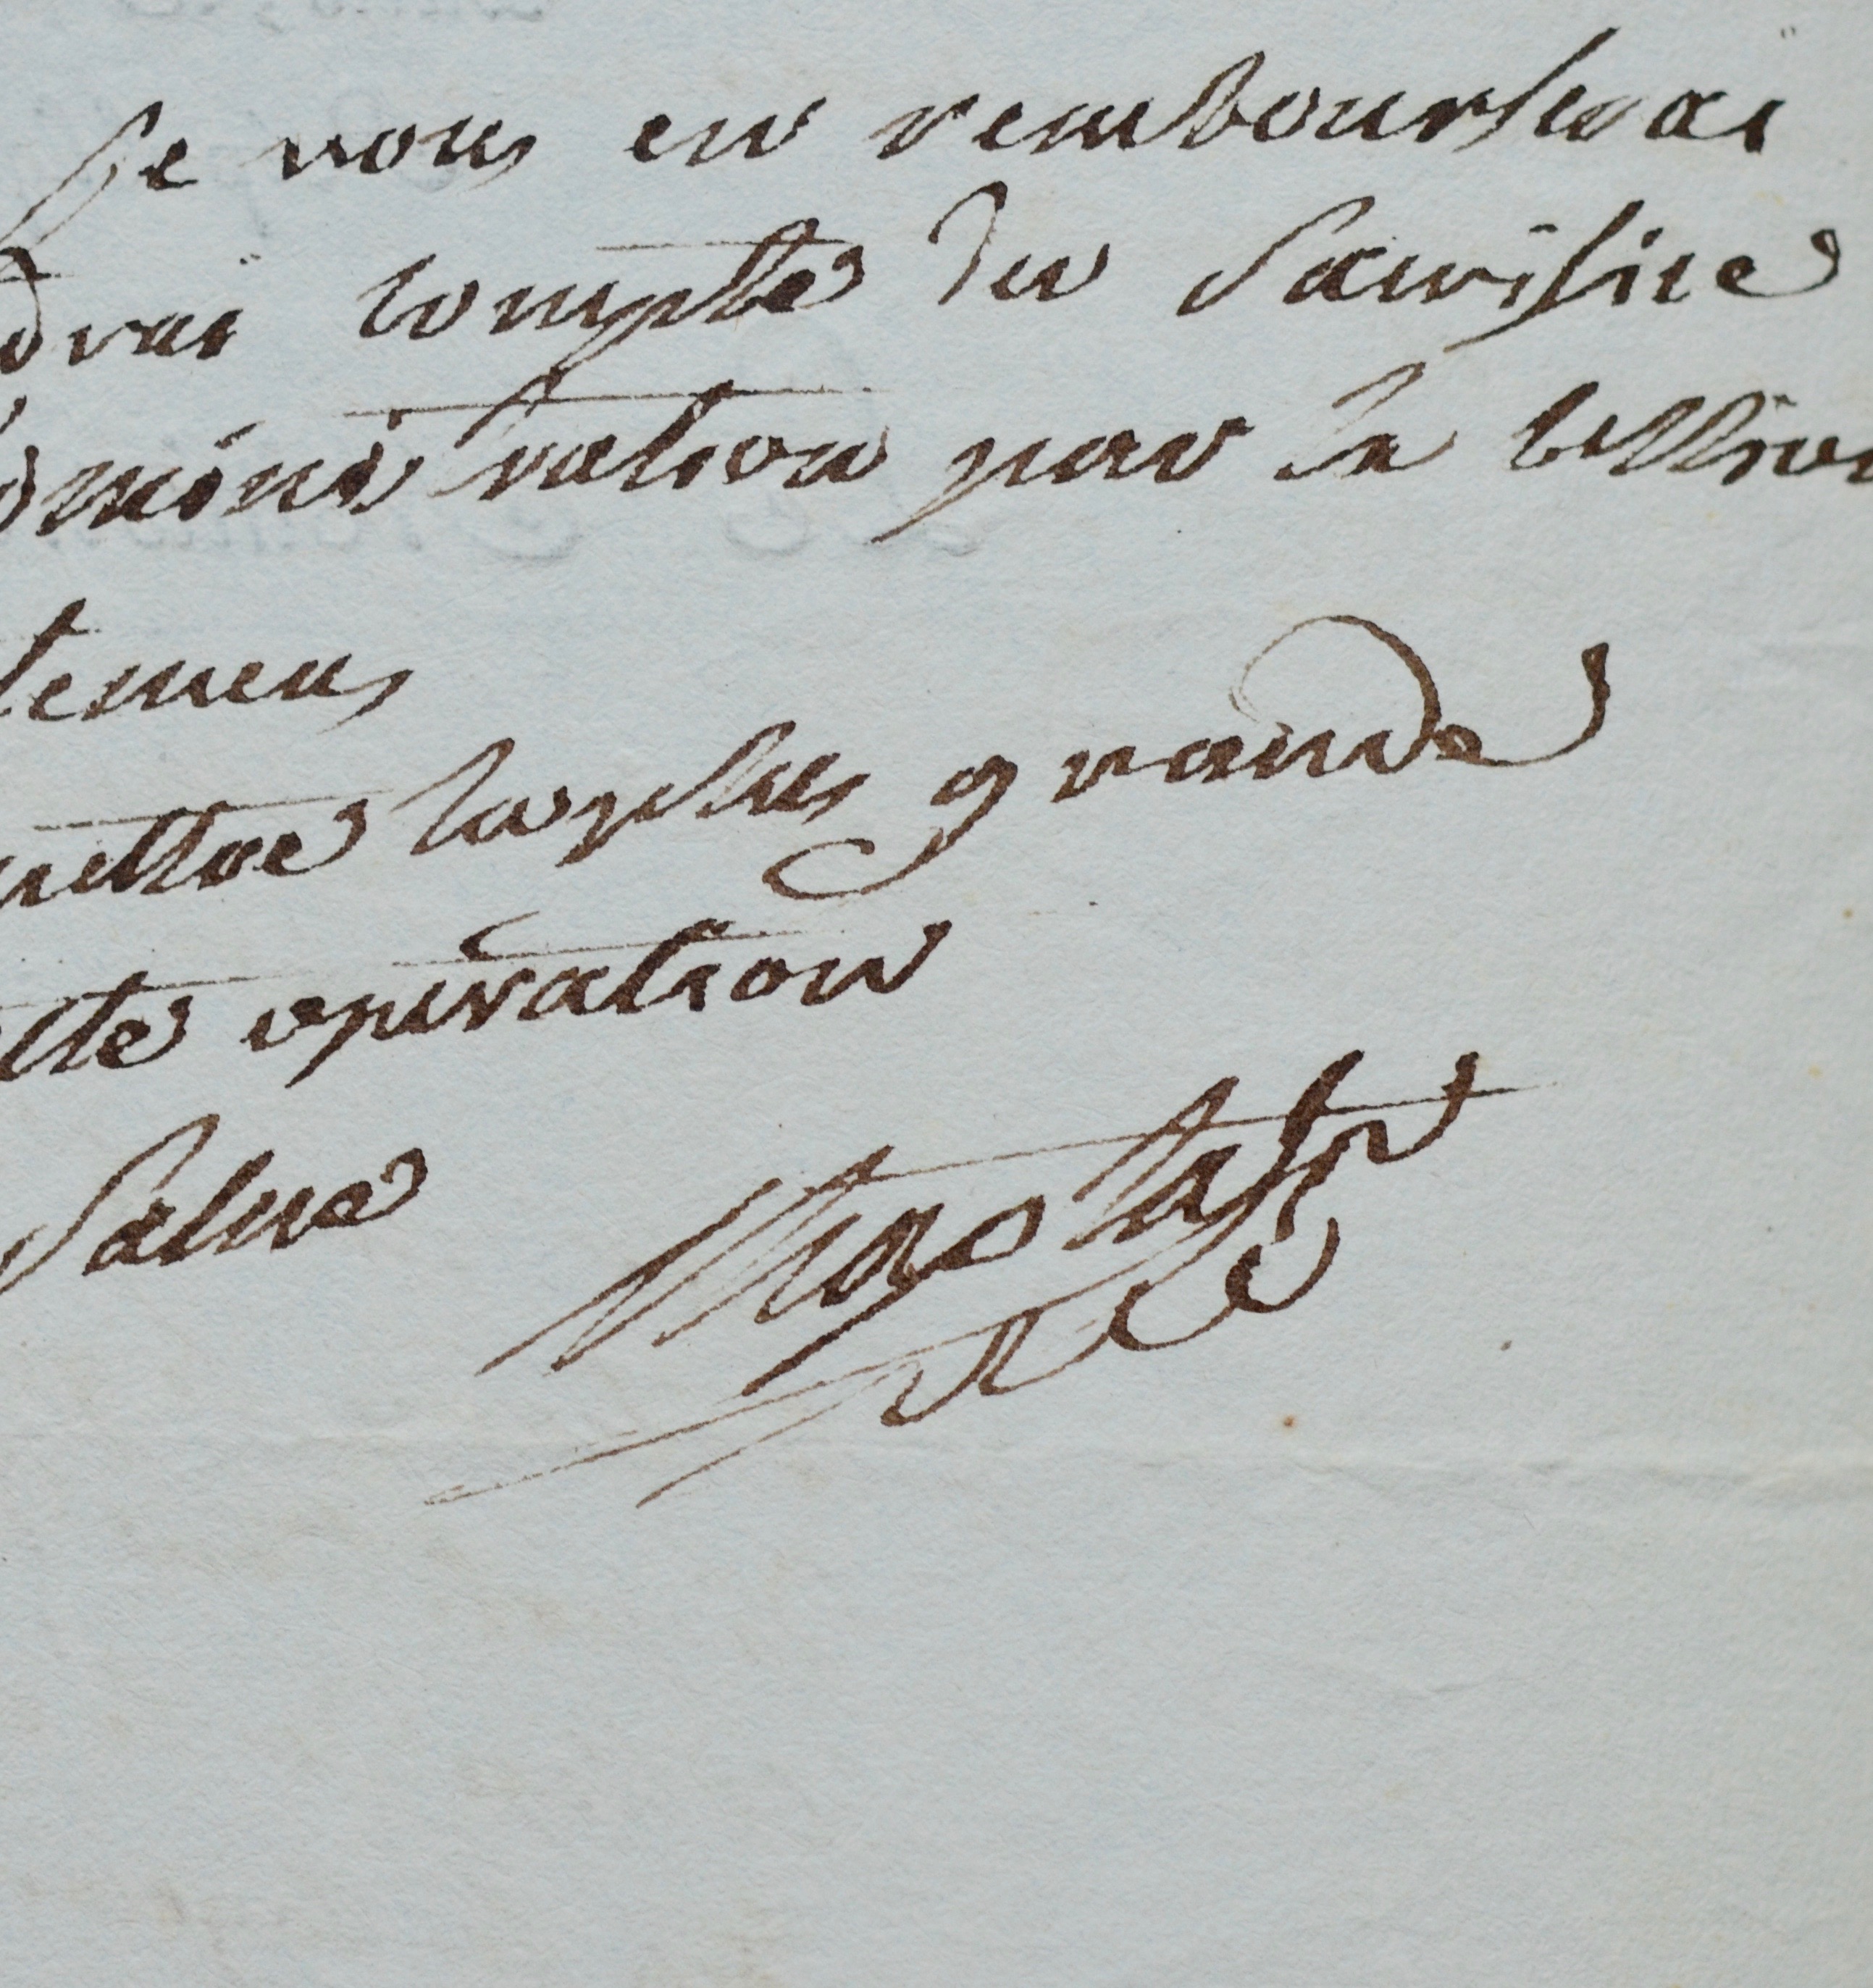 Je vous en rembourserai
drai compte du Sacrifice
dministration par la cession
temens
mettre la plus grande
ette opération
Salue